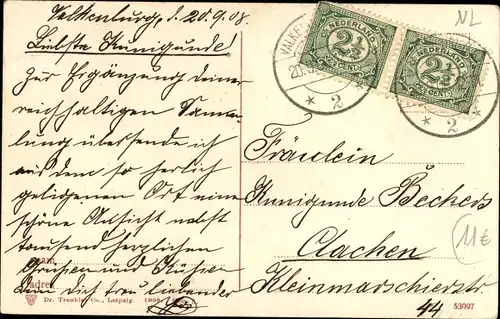 Valkenburg, d. 20.9.08.
Liebste Kunigunde!
Zur Ergänzung deiner
reichhaltigen Samm-
lung übersende ich
aus dem so herrlich
gelegenen Ort eine
schöne Ansicht nebst
tausend herzlichen
Grüßen und Küssen
Dein Dich treu liebender
NL
VALKE
20.
2
NEDERLAND
2½
CENT
NEDERLAND
2½
CENT
2
Fräulein
Kunigunde Beckers
Aachen
Kleinmarschierstr
44
11€
Dr. Trenkler Co., Leipzig. 1906
53097